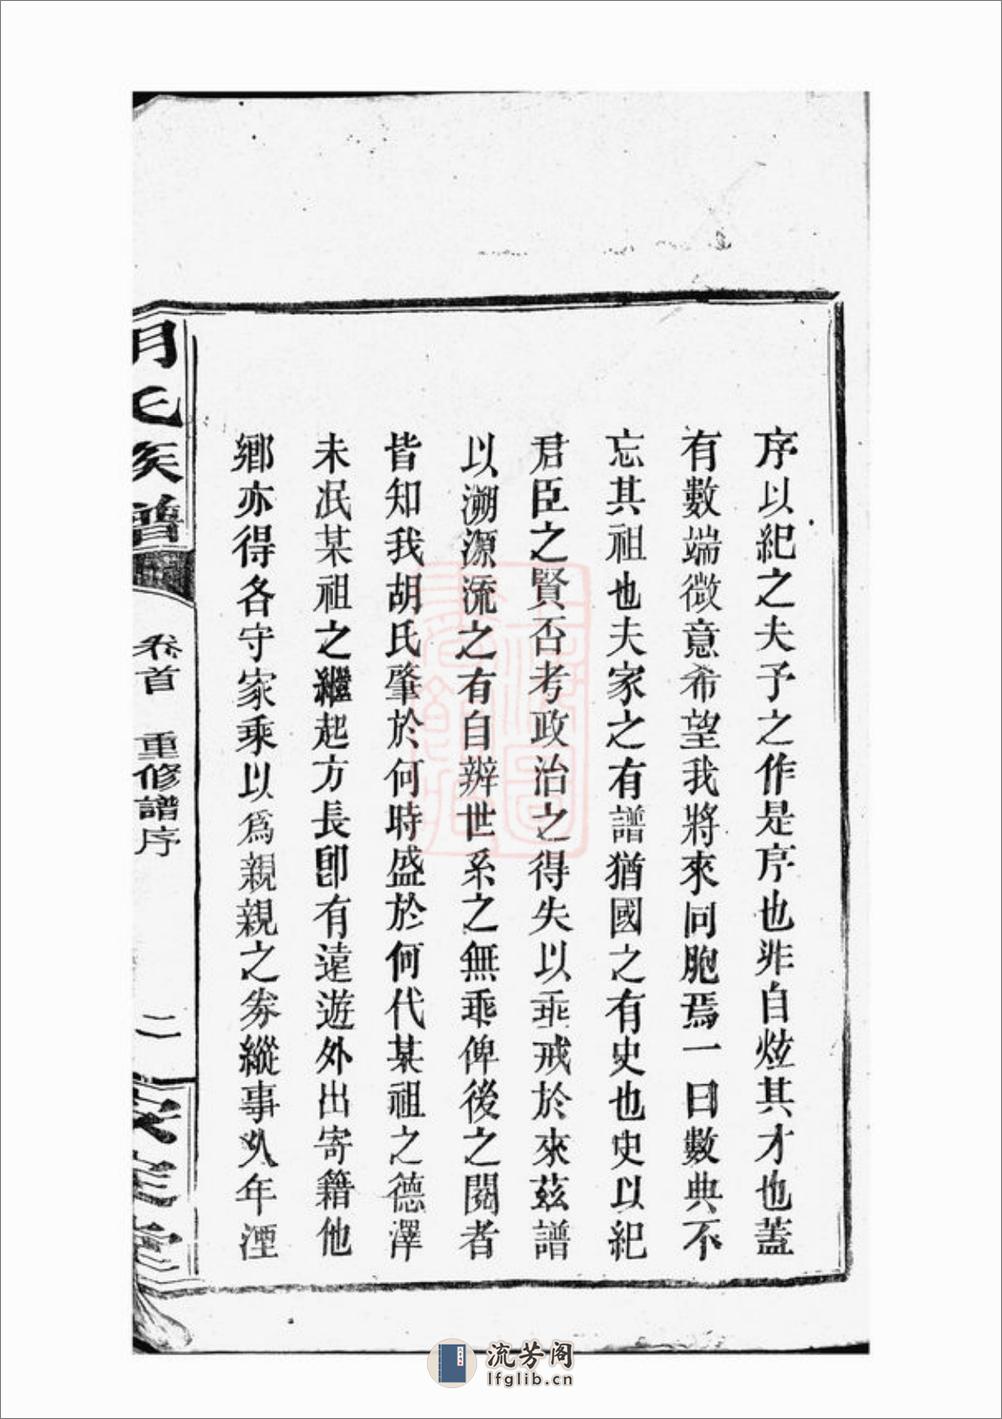 序以紀之夫予之作是序也非自炫其才也蓋
有數端微意希望我將來同胞焉一曰數典不
忘其祖也夫家之有譜猶國之有史也史以紀
君臣之賢否考政治之得失以垂戒於來茲譜
以溯源流之有自辨世系之無乖俾後之閱者
皆知我胡氏肇於何時盛於何代某祖之德澤
未泯某祖之繼起方長卽有遠遊外出寄籍他
鄉亦得各守家乘以爲親親之券縱事久年湮
胡氏族譜
卷首 重修譜序
二
安定堂
流芳阁
lfglib.cn